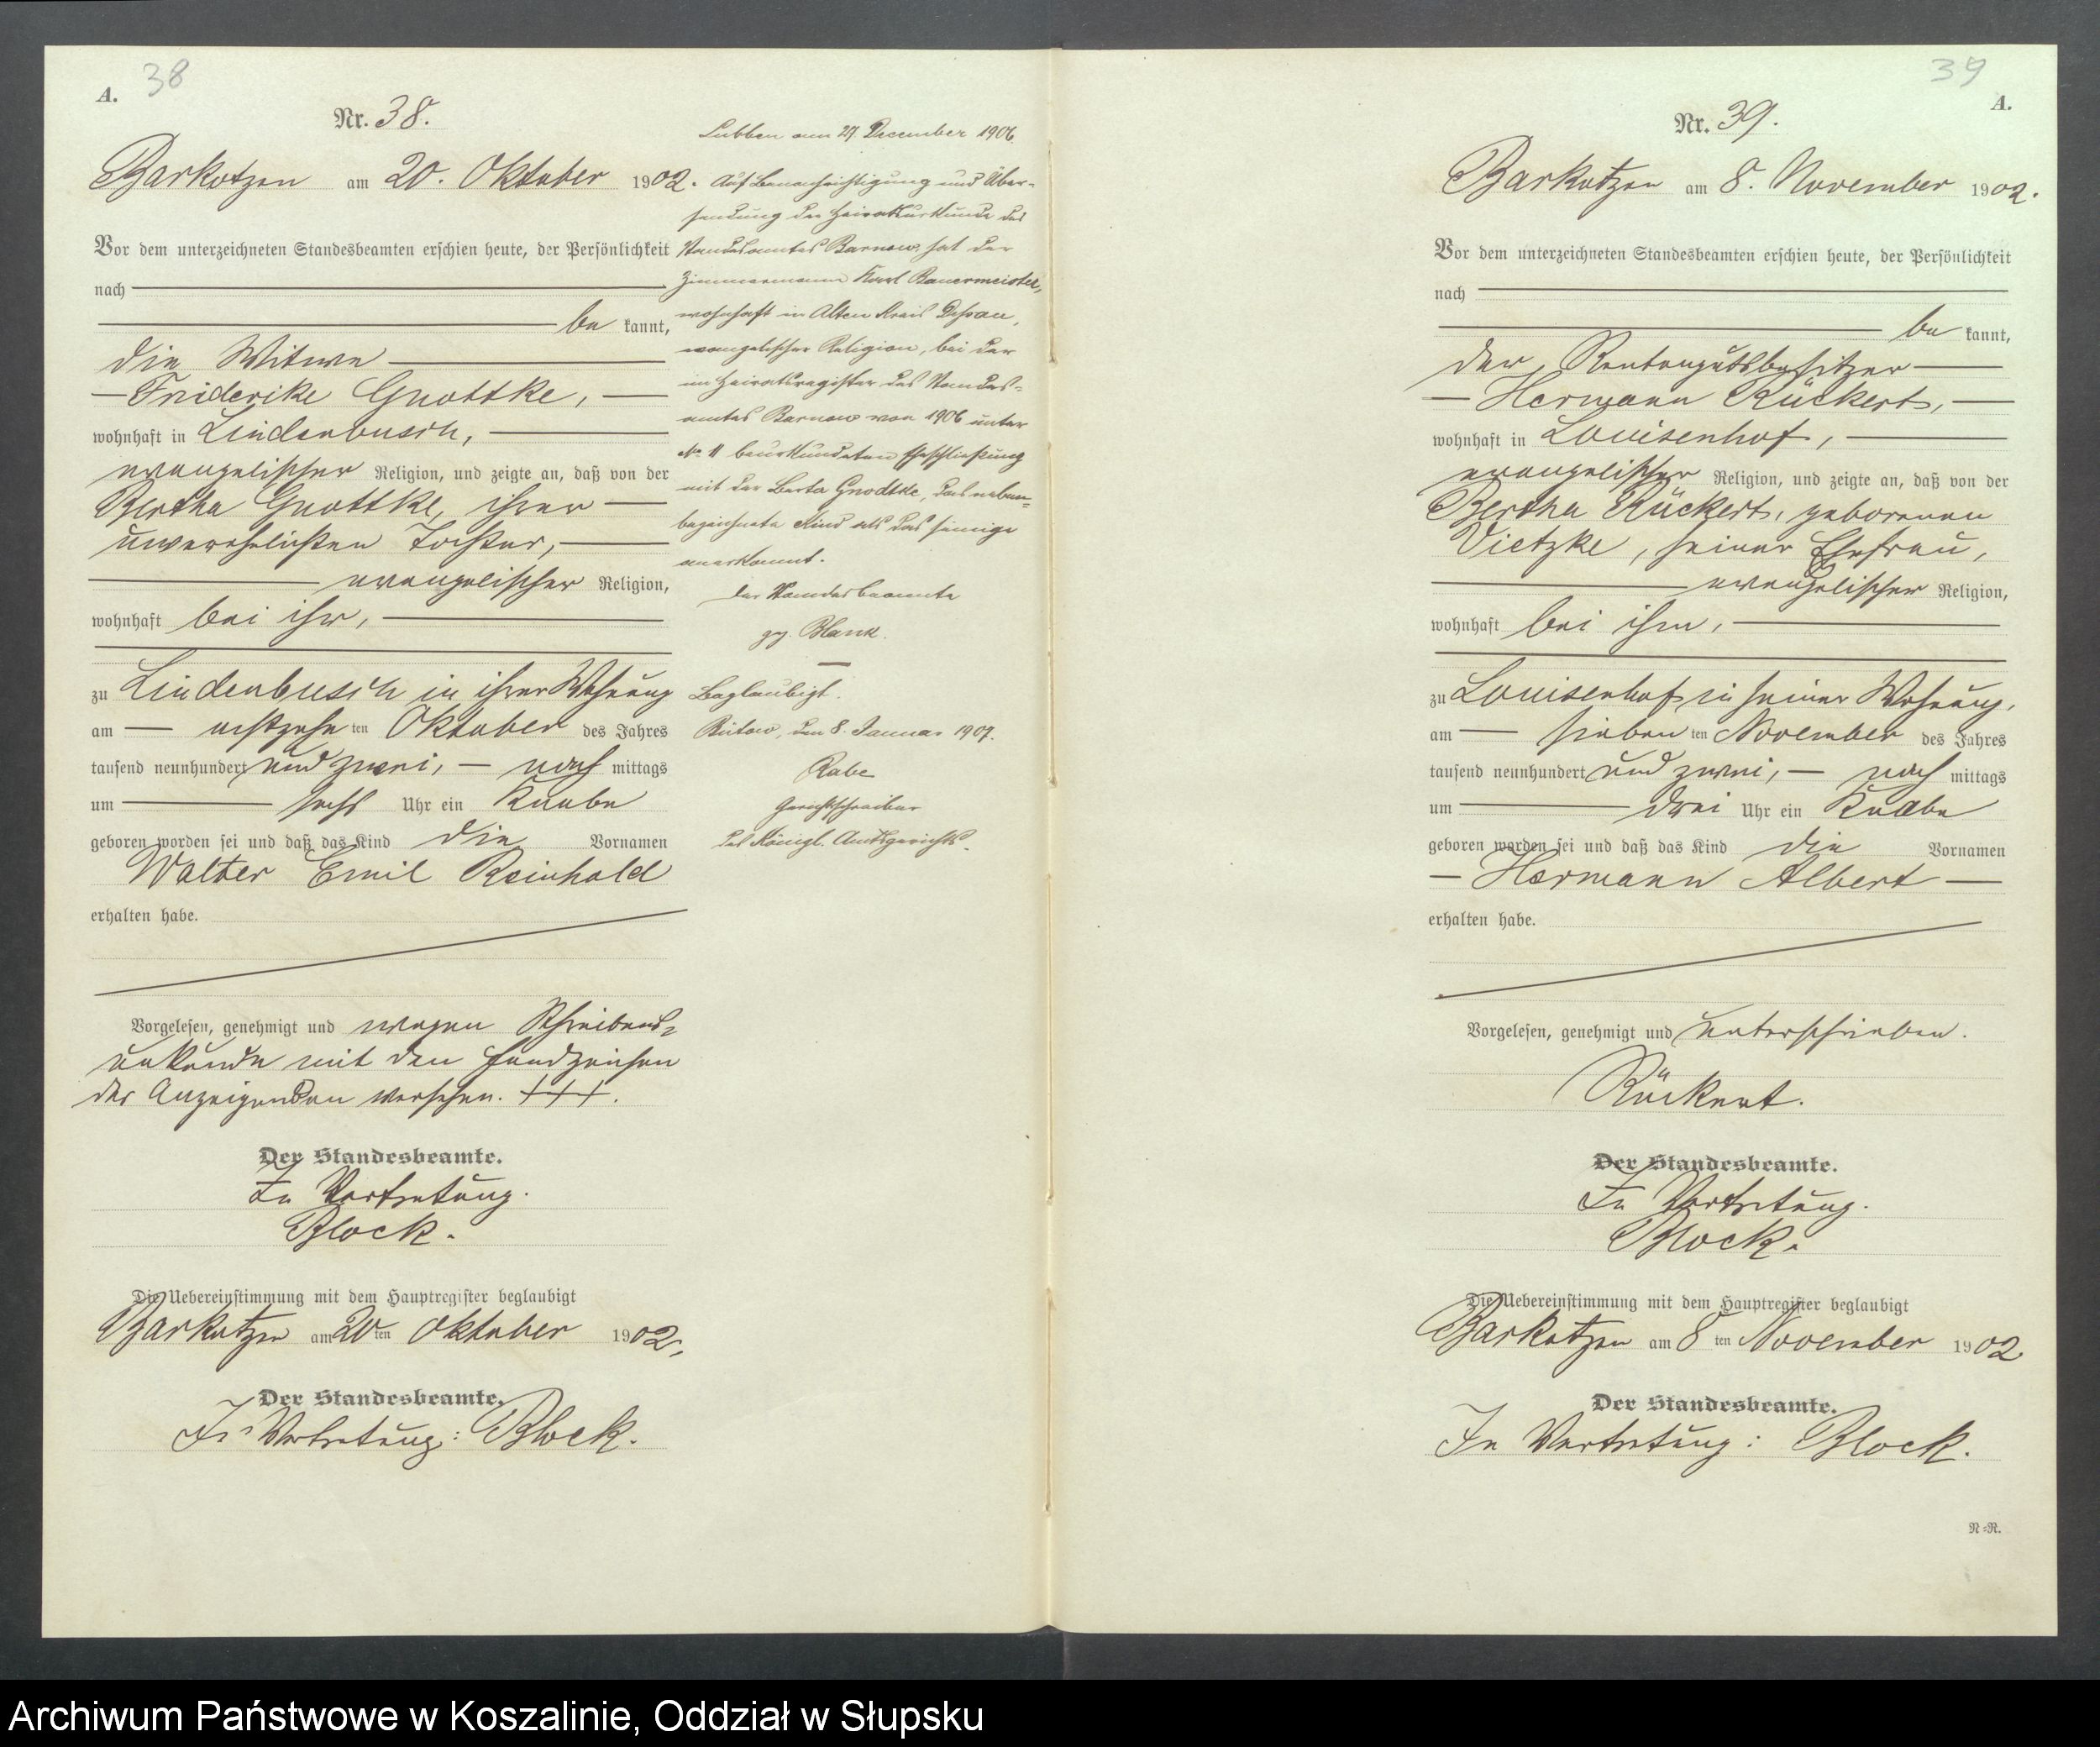 38
A.
Nr. 38.
Barkotzen am 20. Oktober 1902.
Vor dem unterzeichneten Standesbeamten erschien heute, der Persönlichkeit
nach
be kannt,
die Witwe
Friderike Gnottke,
wohnhaft in Lindenbusch,
evangelischer Religion, und zeigte an, daß von der
Bertha Gnottke, ihrer
unverehelichten Tochter,
evangelischer Religion,
wohnhaft bei ihr,
zu Lindenbusch in ihrer Wohnung
am achtzehn ten Oktober des Jahres
tausend neunhundert und zwei, nach mittags
um sechs Uhr ein Knabe
geboren worden sei und daß das Kind die Vornamen
Walter Emil Reinhold
erhalten habe.
Vorgelesen, genehmigt und wegen Schreibens-
unkunde mit den Handzeichen
der Anzeigenden versehen. +++.
Der Standesbeamte.
In Vertretung.
Block.
Die Uebereinstimmung mit dem Hauptregister beglaubigt
Barkotzen am 20 ten Oktober 1902.
Der Standesbeamte.
In Vertretung: Block.
Lubben am 27. December 1906.
Auf Benachrichtigung und Über-
sendung der Heiratsurkunde des
Standesamtes Barnow hat der
Zimmermann Karl Bauermeister,
wohnhaft in Alten Kreis Dessau,
evangelischer Religion, bei der
im Heiratsregister des Standes-
amtes Barnow von 1906 unter
No 11 beurkundeten Eheschließung
mit der Berta Gnodtke, das neben-
bezeichnete Kind als das seinige
anerkannt.
Der Standesbeamte
gez. Blank.
Beglaubigt.
Bütow, den 8. Januar 1907.
Rabe
Gerichtsschreiber
des Königl. Amtsgerichts.
39
A.
Nr. 39.
Barkotzen am 8. November 1902.
Vor dem unterzeichneten Standesbeamten erschien heute, der Persönlichkeit
nach
be kannt,
der Rentengutsbesitzer
Hermann Rückert,
wohnhaft in Louisenhof,
evangelischer Religion, und zeigte an, daß von der
Bertha Rückert, geborenen
Vietzke, seiner Ehefrau,
evangelischer Religion,
wohnhaft bei ihm,
zu Louisenhof in seiner Wohnung,
am sieben ten November des Jahres
tausend neunhundert und zwei, nach mittags
um drei Uhr ein Knabe
geboren worden sei und daß das Kind die Vornamen
Hermann Albert
erhalten habe.
Vorgelesen, genehmigt und unterschrieben.
Rückert.
Der Standesbeamte.
In Vertretung.
Block.
Die Uebereinstimmung mit dem Hauptregister beglaubigt
Barkotzen am 8 ten November 1902
Der Standesbeamte.
In Vertretung: Block.
N=R.
Archiwum Państwowe w Koszalinie, Oddział w Słupsku